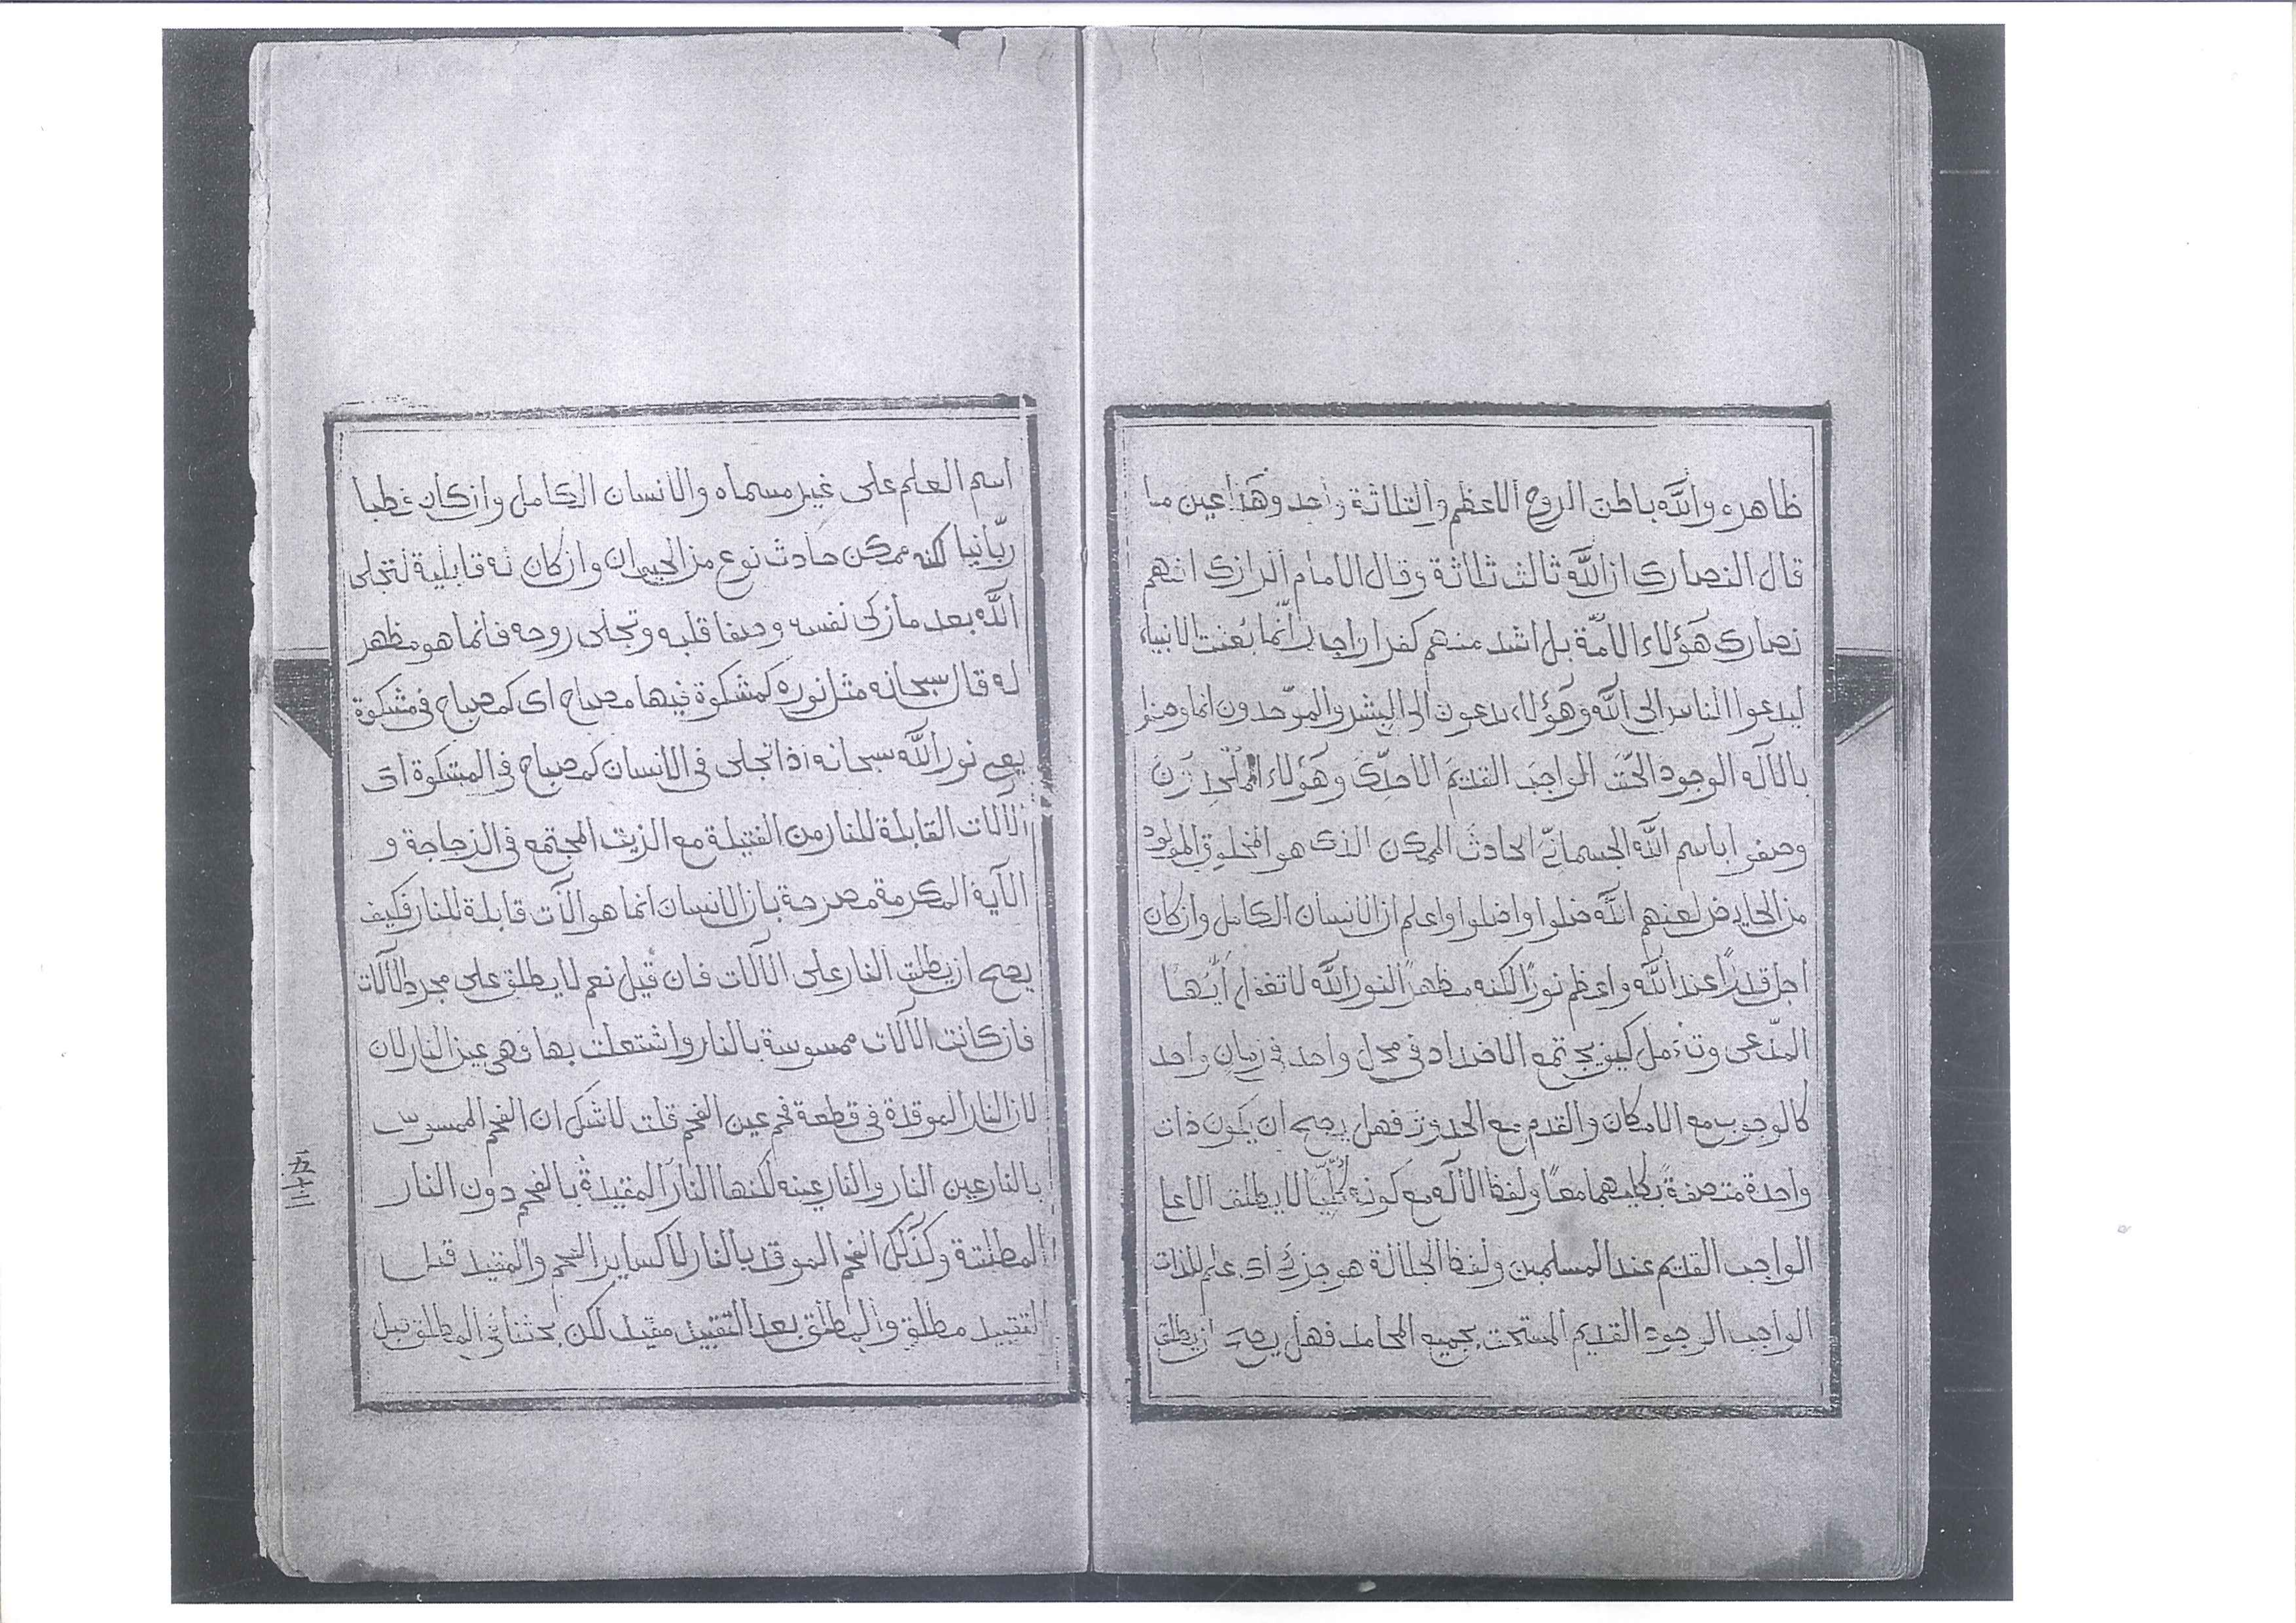 ظاهره والله باطن الروح الاعظم والثلاثة واحد وهذا عين ما
قال النصارى ان الله ثالث ثلاثة وقال الامام الرازى انهم
نصارى هؤلاء الامّة بل اشد منهم كفرا انّما بعثت الانبياء
ليدعوا الناس الى الله وهؤلاء يدعون الى البشر والموّحدون انما وصفوا
بالآله الوجود الحق الواجب القديم الاحدىّ وهؤلاء الملحدون
وصفوا باسم الله الجسمانىّ الحادث الممكن الذى هو المخلوق المولود
من الحايض لعنهم الله ضلوا واضلوا واعلم ان الانسان الكامل وان كان
اجل قدرًا عند الله واعظم نورًا لكنه مظهر النور الله لا تغفل ايّها
المدّعى وتأمل كيف يجتمع الاضداد فى محل واحد فى زمان واحد
كالوجوب مع الامكان والقدم مع الحدوث فهل يصح ان يكون ذات
واحدة متصفة بكليهما معًا ولفظ الآله مع كونه كليّا لا يطلق الا على
الواجب القديم عند المسلمين ولفظ الجلالة هو جزئ اى علم للذات
الواجب الوجود القديم المستحق بجميع المحامد فهل يصح ان يطلق
اسم العلم على غير مسماه والانسان الكامل وان كان قطبا
ربّانيا لكنه ممكن حادث نوع من الحيوان وان كان له قابلية لتجلى
الله بعد ما زكى نفسه وصفا قلبه وتجلى روحه فانما هو مظهر
له قال سبحانه مثل نوره كمشكوة فيها مصباح اى كمصباح فى مشكوة
يعنى نور الله سبحانه اذا تجلى فى الانسان كمصباح فى المشكوة اى
الآلات القابلة للنار من الفتيلة مع الزيت المجتمع فى الزجاجة و
الآية المكرمة مصرحة بان الانسان انما هو الآت قابلة للنار فكيف
يصح ان يطلق النار على الآلات فان قيل نعم لا يطلق على مجرد الآلات
فان كانت الآلات ممسوسة بالنار واشتعلت بها فهى عين النار لان
لان النار الموقدة فى قطعة فحم عين الفحم قلت لا شك ان الفحم الممسوس
بالنار عين النار والنار عينه لكنها النار المقيدة بالفحم دون النار
المطلقة وكذلك الفحم الموقد بالنار لا كساير الفحم والمقيد قبل
التقييد مطلق والمطلق بعد التقييد مقيد لكن بحثنا فى المطلق قبل